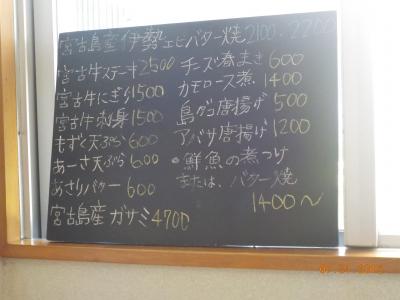 宮古島産伊勢エビバター焼2100~2200
宮古牛ステーキ2500
宮古牛にぎり1500
宮古牛刺身1500
もずく天ぷら600
あーさ天ぷら600
あさりバター600
宮古島産ガサミ4700
チーズ春まき600
カモロース煮1400
島ダコ唐揚げ500
アバサ唐揚げ1200
・鮮魚の煮つけ
または、バター焼
1400～